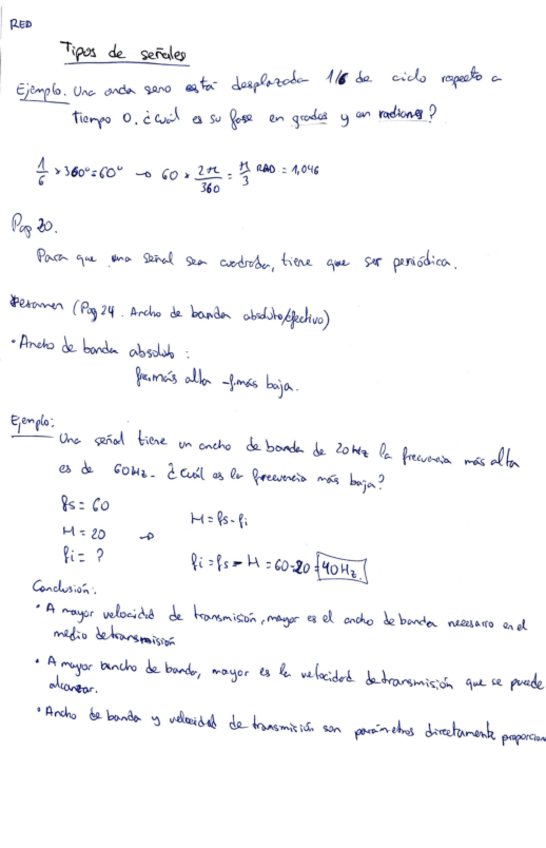 RED
Tipos de señales
Ejemplo. Una onda seno está desplazada 1/6 de ciclo respecto a
tiempo 0. ¿Cuál es su fase en grados y en radianes?
1/6 × 360° = 60° → 60 × 2π/360 = π/3 RAD = 1,046
Pag 20.
Para que una señal sea cuadrada, tiene que ser periódica.
Resumen (Pag 24. Ancho de banda absoluto/efectivo)
· Ancho de banda absoluto :
frec.más alta - f.más baja.
Ejemplo:
Una señal tiene un ancho de banda de 20Hz la frecuencia más alta
es de 60Hz. ¿Cuál es la frecuencia más baja?
fs = 60
H = 20 → H = fs - fi
fi = ? fi = fs - H = 60-20 = 40Hz.
Conclusión:
· A mayor velocidad de transmisión, mayor es el ancho de banda necesario en el
medio de transmisión
· A mayor bancho de banda, mayor es la velocidad de transmisión que se puede
alcanzar.
· Ancho de banda y velocidad de transmisión son parámetros directamente proporcion